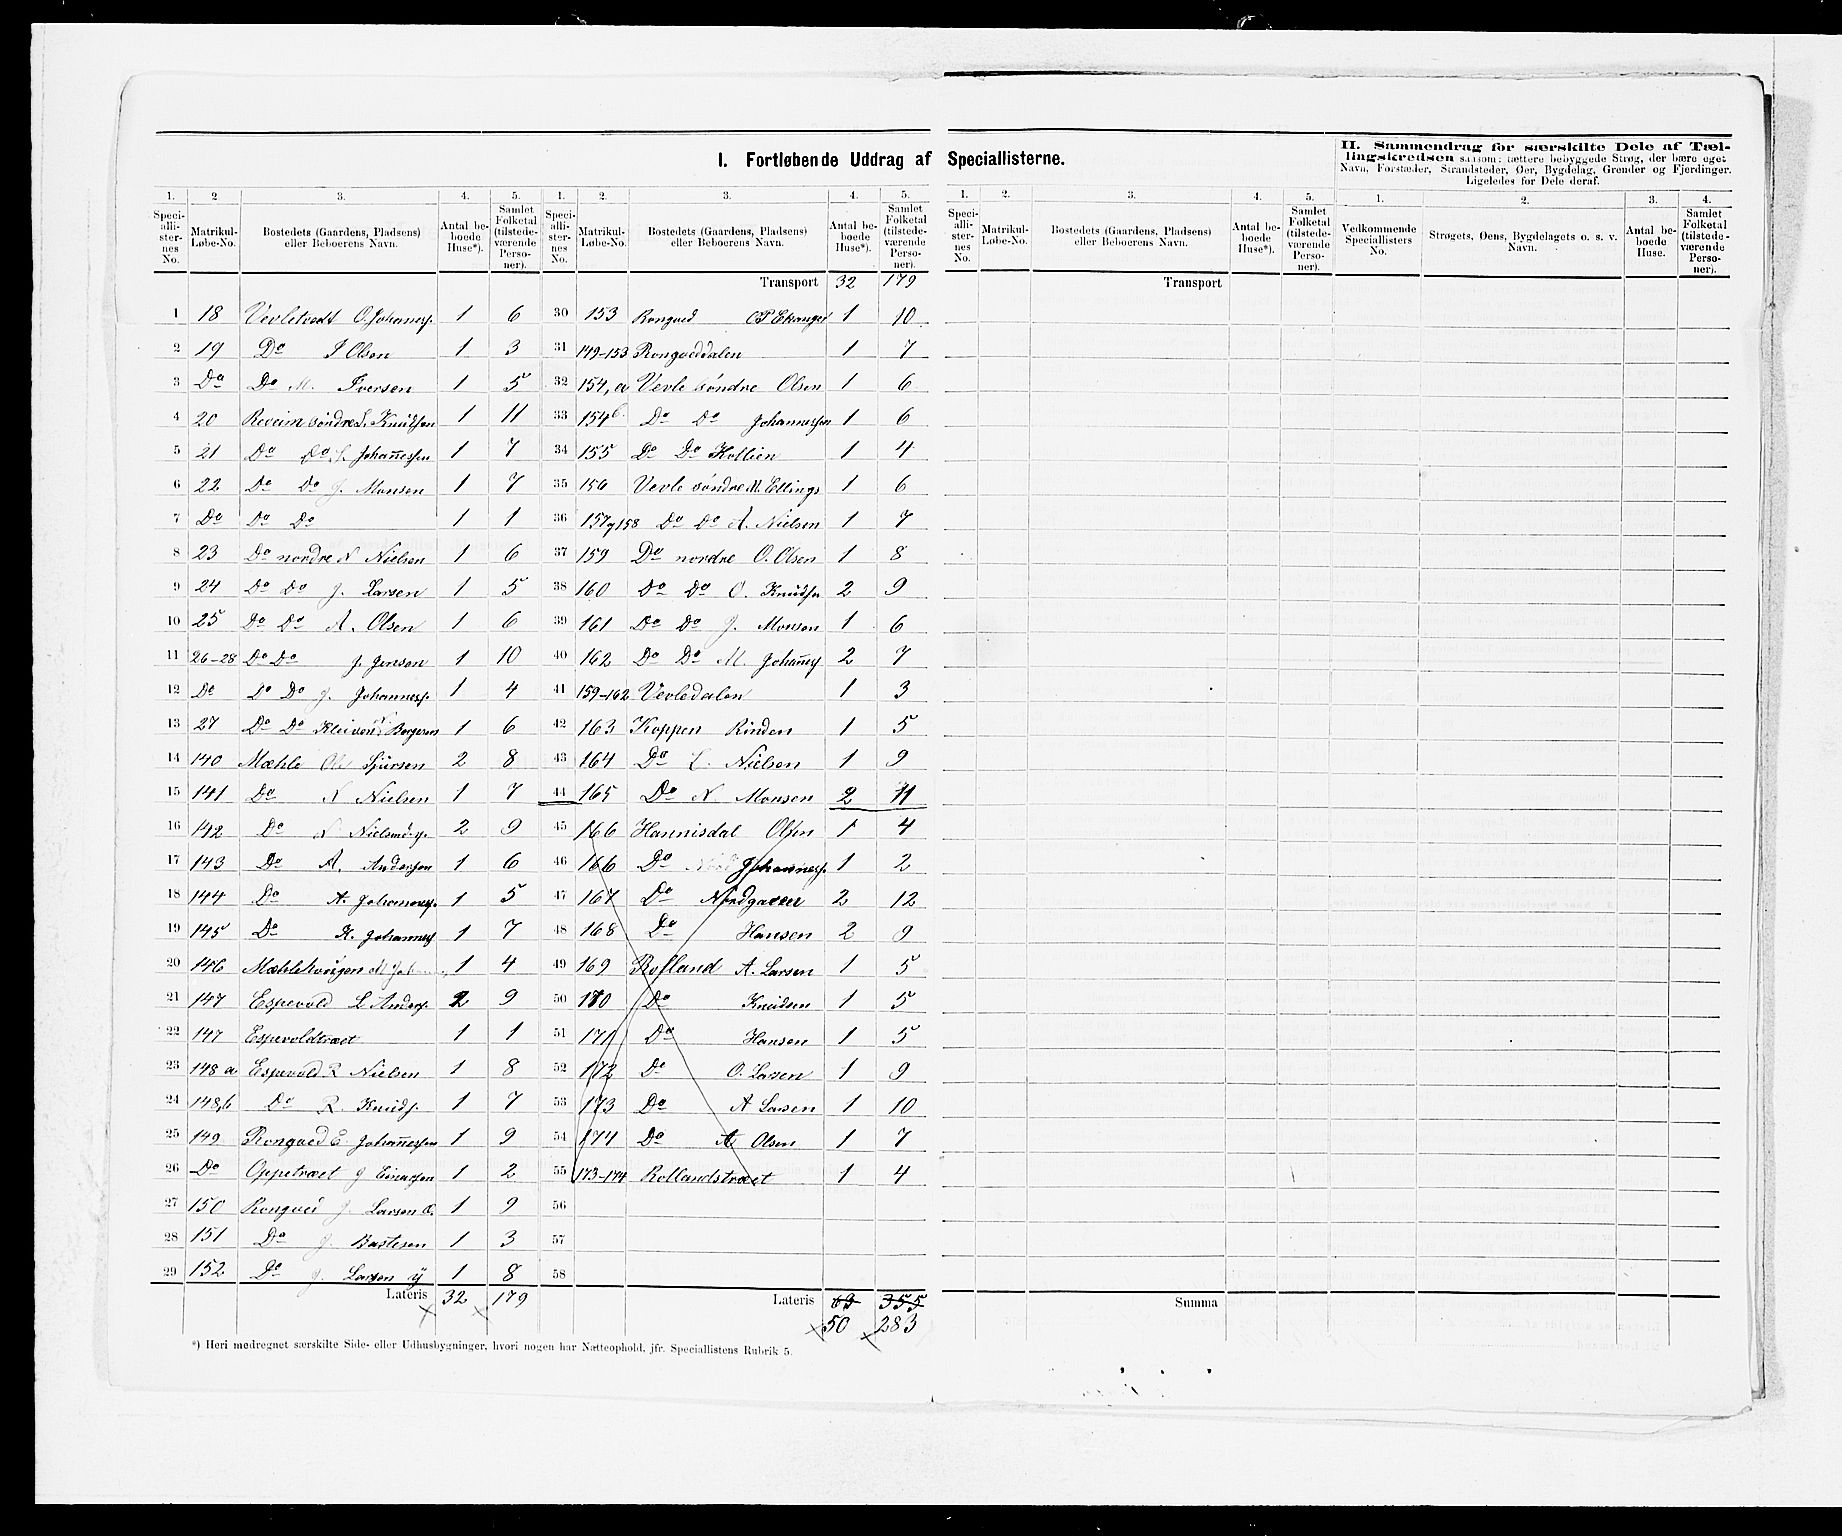 I. Fortløbende Uddrag af Speciallisterne.
II. Sammendrag for særskilte Dele af Tællingskredsen saasom: tættere bebyggede Strøg, der bære eget Navn, Forstæder, Strandsteder, Øer, Bygdelag, Grender og Fjerdinger. Ligeledes for Dele deraf.
1. 2 3. 4. 5. 1. 2. 3. 4. 5. 1. 2. 3. 4. 5. 1. 2. 3. 4.
Speciallisternes No. Matrikul-Løbe-No. Bostedets (Gaardens, Pladsens) eller Beboerens Navn. Antal beboede Huse*). Samlet Folketal (tilstedeværende Personer).
Speciallisternes No. Matrikul-Løbe-No. Bostedets (Gaardens, Pladsens) eller Beboerens Navn. Antal beboede Huse*). Samlet Folketal (tilstedeværende Personer).
Speciallisternes No. Matrikul-Løbe-No. Bostedets (Gaardens, Pladsens) eller Beboerens Navn. Antal beboede Huse*). Samlet Folketal (tilstedeværende Personer).
Vedkommende Speciallisters No. Strøgets, Øens, Bygdelagets o. s. v. Navn. Antal beboede Huse. Samlet Folketal (tilstedeværende Personer).
1 18 Vevletvedt O. Johannesf. 1 6
2 19 Do I Olsen 1 3
3 Do Do M. Iversen 1 5
4 20 Reveim søndre L. Knudsen 1 11
5 21 Do Do Johannessen 1 7
6 22 Do Do J. Monsen 1 7
7 Do Do Do 1 1
8 23 Do nordre N Nielsen 1 6
9 24 Do Do J. Larsen 1 5
10 25 Do Do A. Olsen 1 6
11 26-28 Do Do J. Jensen 1 10
12 Do Do Do J. Johannesf. 1 4
13 27 Do Do Kleiven 1 6
14 140 Mæhle Ole Sjursen 2 8
15 141 Do N Nielsen 1 7
16 142 Do N Nielsen d. y. 2 9
17 143 Do A. Andersen 1 6
18 144 Do A. Johannesf. 1 5
19 145 Do K. Johannesf 1 7
20 146 1 4
21 147 Espevold L. Andersf. 2 9
22 147 Espevoldtræet 1 1
23 148 a Espevold R Nielsen 1 8
24 148,b Do R. Knudsf. 1 7
25 149 Rongved E. Johannessen 1 9
26 Do Oppetræet 1 2
27 150 Rongved J. Larsen 1 9
28 151 Do J. Bastesen 1 3
29 152 Do J. Larsen y 1 8
Lateris 32 179
Transport 32 179
30 153 Rongved 1 10
31 149-153 Rongveddalen 1 7
32 154, a Vevle søndre Olsen 1 6
33 154 b. Do Do Johannessen 1 6
34 155 Do Do Kollien 1 4
35 156 Vevle søndre M. Ellings 1 6
36 157 g 158 Do Do A. Nielsen 1 7
37 159 Do nordre O. Olsen 1 8
38 160 Do Do O. Knudsen 2 9
39 161 Do Do J. Monsen 1 6
40 162 Do Do M. Johannesf 2 7
41 159-162 Vevledalen 1 3
42 163 Koppen Rinden 1 5
43 164 Do L. Nielsen 1 9
44 165 Do N. Monsen 2 11
45 166 Hannisdal Olsen 1 4
46 166 Do Johannesf. 1 2
47 167 Do Nordgaard 2 12
48 168 Do Hansen 2 9
49 169 Rolland A. Larsen 1 5
50 170 Do Knudsen 1 5
51 171 Do Hansen 1 5
52 172 Do O. Larsen 1 9
53 173 Do A Larsen 1 10
54 174 Do A. Olsen 1 7
55 173-174 Rollandstræet 1 4
56
57
58
Lateris 63 355
50 283
Transport
Summa
*) Heri medregnet særskilte Side- eller Udhusbygninger, hvori nogen har Natteophold, jfr. Speciallistens Rubrik 5.